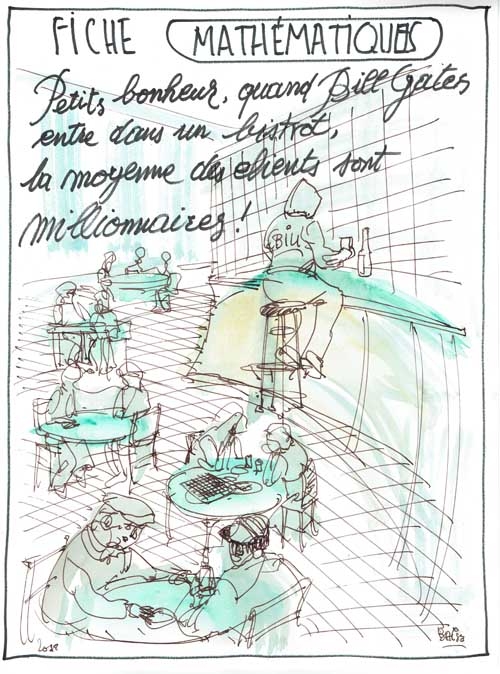 FICHE MATHÉMATIQUES
Petits bonheur, quand Bill Gates
entre dans un bistrot,
la moyenne des clients sont
millionnaires !
Bill
2018